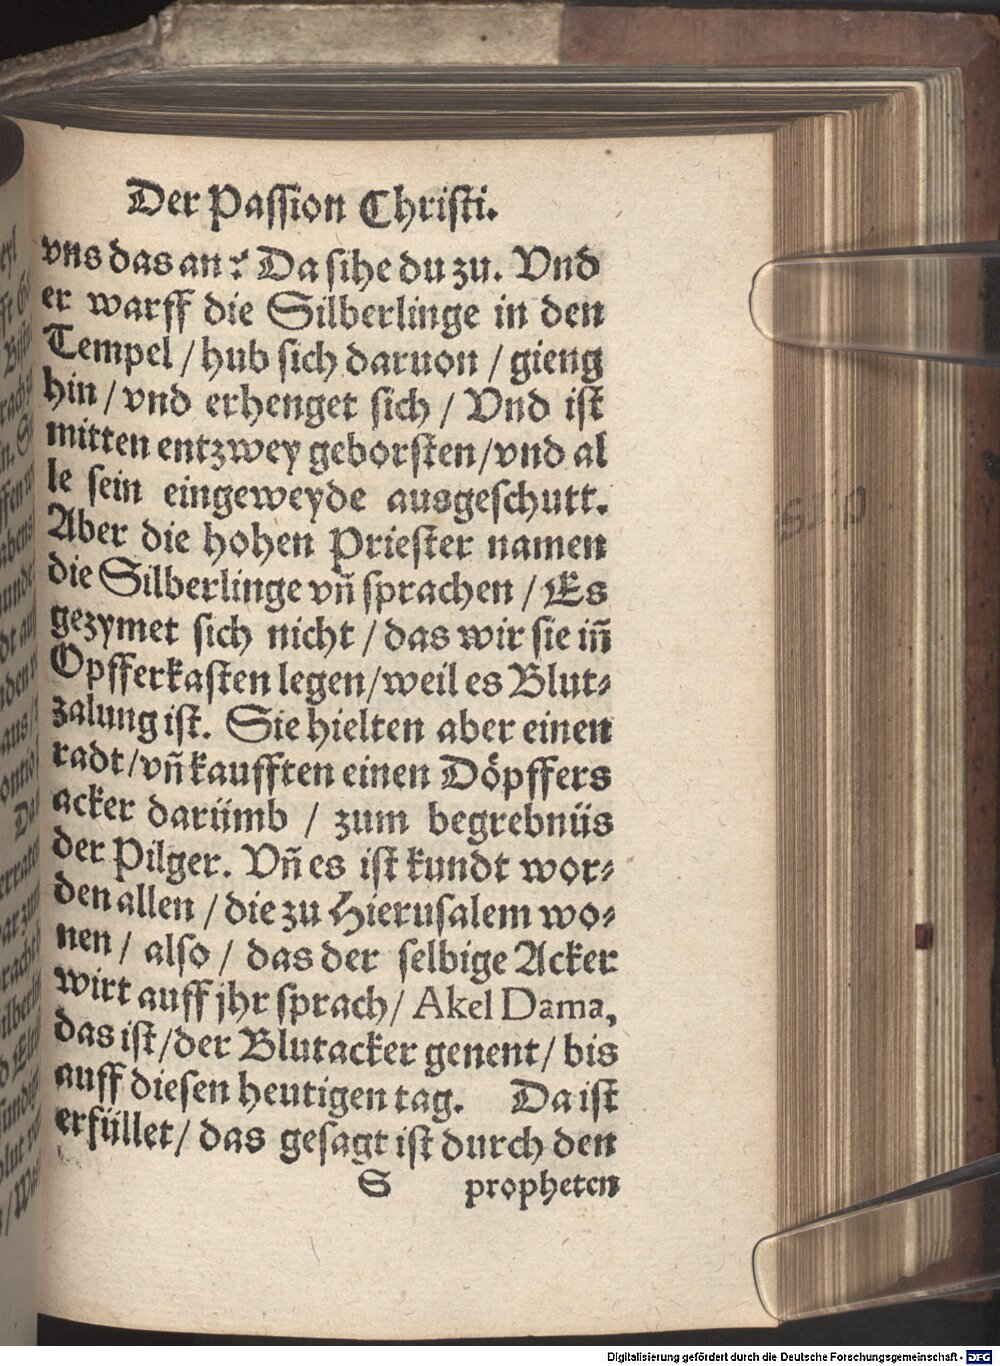 Der Passion Christi.
vns das an? Da sihe du zu. Vnd
er warff die Silberlinge in den
Tempel / hub sich daruon / gieng
hin / vnd erhenget sich / Vnd ist
mitten entzwey geborsten/vnd al
le sein eingeweyde ausgeschutt.
Aber die hohen Priester namen
die Silberlinge vñ sprachen / Es
gezymet sich nicht / das wir sie iñ
Opfferkasten legen/weil es Blut⸗
zalung ist. Sie hielten aber einen
radt/vñ kaufften einen Döpffers
acker darümb / zum begrebnüs
der Pilger. Vñ es ist kundt wor⸗
den allen / die zu Hierusalem wo⸗
nen / also / das der selbige Acker
wirt auff jhr sprach/ Akel Dama,
das ist/der Blutacker genent/ bis
auff diesen heutigen tag. Da ist
erfüllet/ das gesagt ist durch den
S propheten
Digitalisierung gefördert durch die Deutsche Forschungsgemeinschaft - DFG